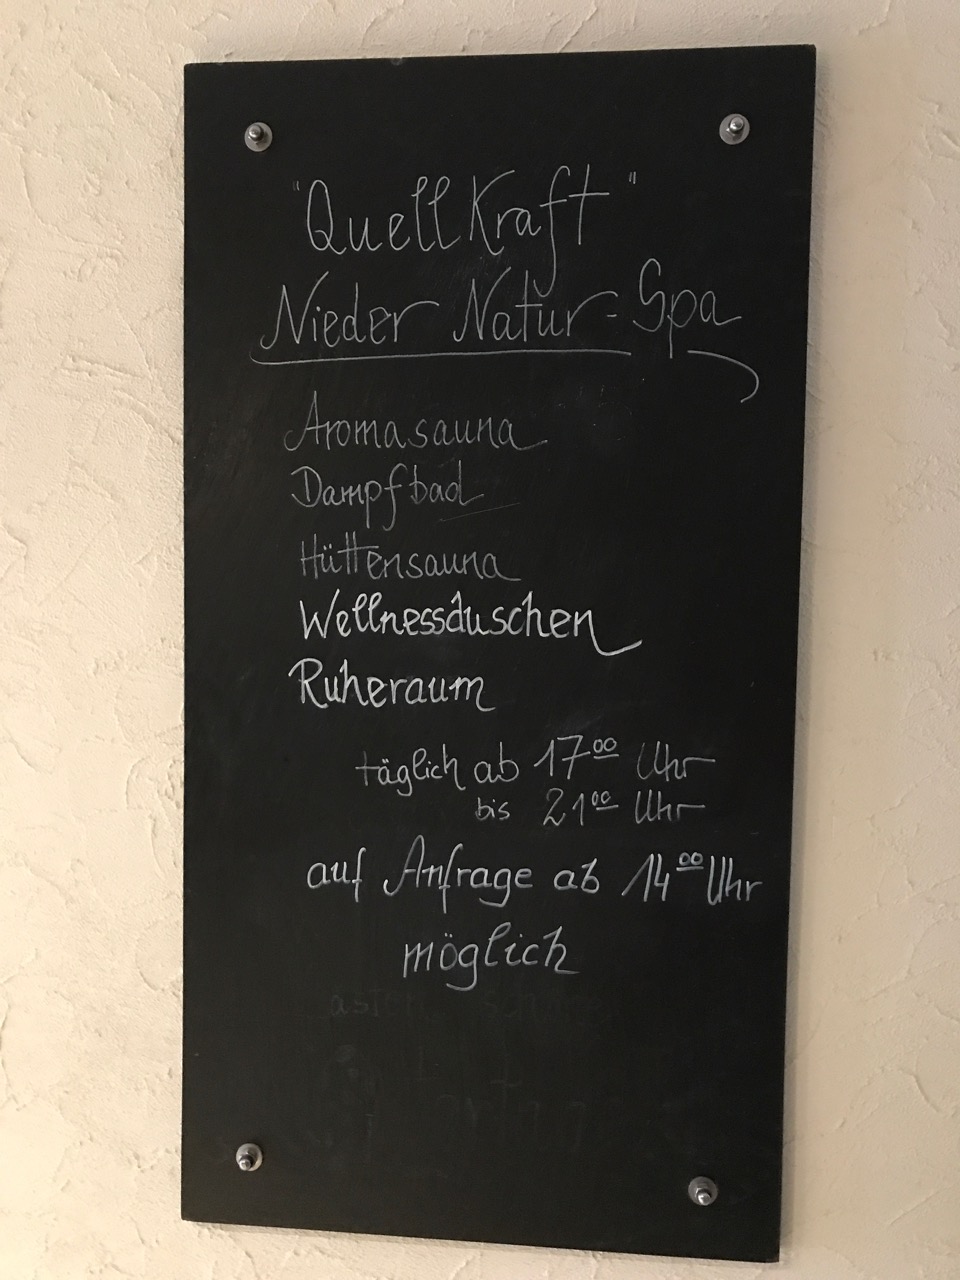 "QuellKraft"
Nieder Natur-Spa
Aromasauna
Dampfbad
Hüttensauna
Wellnessduschen
Ruheraum
täglich ab 17⁰⁰ Uhr
bis 21⁰⁰ Uhr
auf Anfrage ab 14⁰⁰ Uhr
möglich